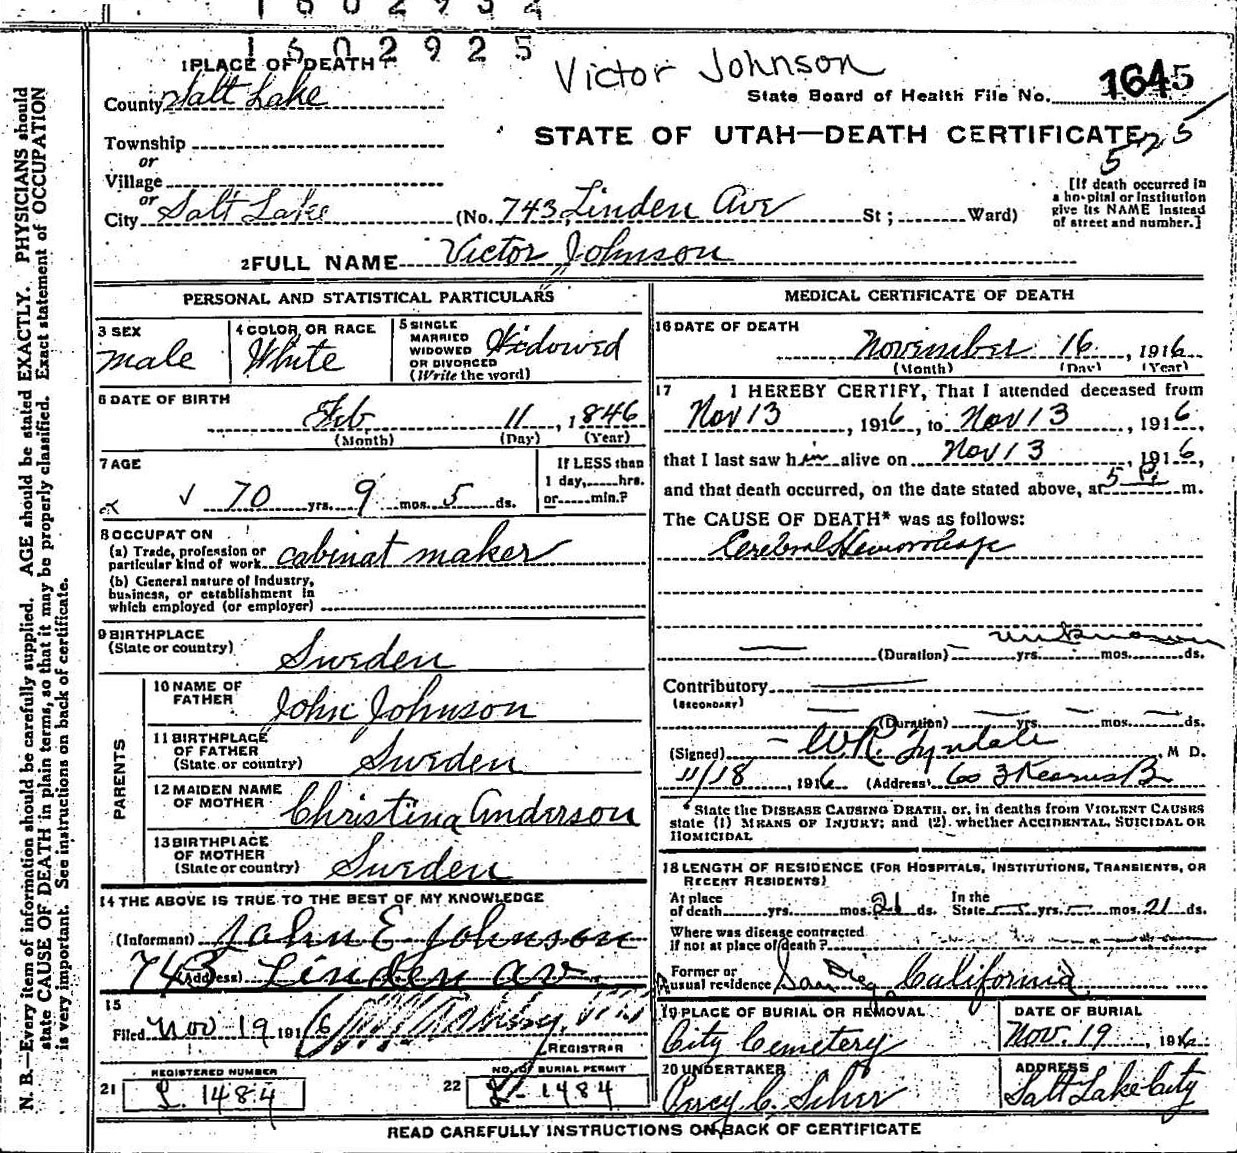 1602925
Victor Johnson
1 PLACE OF DEATH
County Salt Lake
State Board of Health File No. 1645
Township
or
Village
or
City Salt Lake (No. 743, Linden Ave St; Ward)
STATE OF UTAH—DEATH CERTIFICATE
525
[If death occurred in
a hospital or institution
give its NAME instead
of street and number.]
2 FULL NAME Victor Johnson
PERSONAL AND STATISTICAL PARTICULARS
3 SEX
male
4 COLOR OR RACE
White
5 SINGLE
MARRIED
WIDOWED
OR DIVORCED
(Write the word)
Widowed
6 DATE OF BIRTH
Feb 11, 1846
(Month) (Day) (Year)
7 AGE
70 yrs. 9 mos. 5 ds.
If LESS than
1 day, hrs.
or min.?
8 OCCUPATION
(a) Trade, profession or
particular kind of work cabinat maker
(b) General nature of Industry,
business, or establishment in
which employed (or employer)
9 BIRTHPLACE
(State or country) Sweden
PARENTS
10 NAME OF
FATHER John Johnson
11 BIRTHPLACE
OF FATHER
(State or country) Sweden
12 MAIDEN NAME
OF MOTHER Christina Anderson
13 BIRTHPLACE
OF MOTHER
(State or country) Sweden
14 THE ABOVE IS TRUE TO THE BEST OF MY KNOWLEDGE
(Informant) John E Johnson
(Address) 743 Linden av.
15
Filed Nov 19 1916
REGISTRAR
REGISTERED NUMBER
21 L. 1484
NO. OF BURIAL PERMIT
22 L- 1484
MEDICAL CERTIFICATE OF DEATH
16 DATE OF DEATH
November 16, 1916
(Month) (Day) (Year)
17 I HEREBY CERTIFY, That I attended deceased from
Nov 13, 1916, to Nov 13, 1916,
that I last saw him alive on Nov 13, 1916,
and that death occurred, on the date stated above, at 5 P. m.
The CAUSE OF DEATH* was as follows:
Cerebral Hemorrhage
unknown
(Duration) yrs. mos. ds.
Contributory
(SECONDARY)
(Duration) yrs. mos. ds.
(Signed) W R. Tyndale, M D.
11/18, 1916 (Address) Kearns B
*State the DISEASE CAUSING DEATH, or, in deaths from VIOLENT CAUSES
state (1) MEANS OF INJURY; and (2) whether ACCIDENTAL, SUICIDAL OR
HOMICIDAL
18 LENGTH OF RESIDENCE (FOR HOSPITALS, INSTITUTIONS, TRANSIENTS, OR
RECENT RESIDENTS)
At place
of death yrs. mos. 21 ds.
In the
State yrs. mos. 21 ds.
Where was disease contracted
if not at place of death?
Former or
usual residence San Diego, California
19 PLACE OF BURIAL OR REMOVAL
City Cemetery
DATE OF BURIAL
Nov. 19, 1916
20 UNDERTAKER
Percy C.
ADDRESS
Salt Lake City
READ CAREFULLY INSTRUCTIONS ON BACK OF CERTIFICATE
N. B.—Every item of information should be carefully supplied. AGE should be stated EXACTLY. PHYSICIANS should
state CAUSE OF DEATH in plain terms, so that it may be properly classified. Exact statement of OCCUPATION
is very important. See instructions on back of certificate.